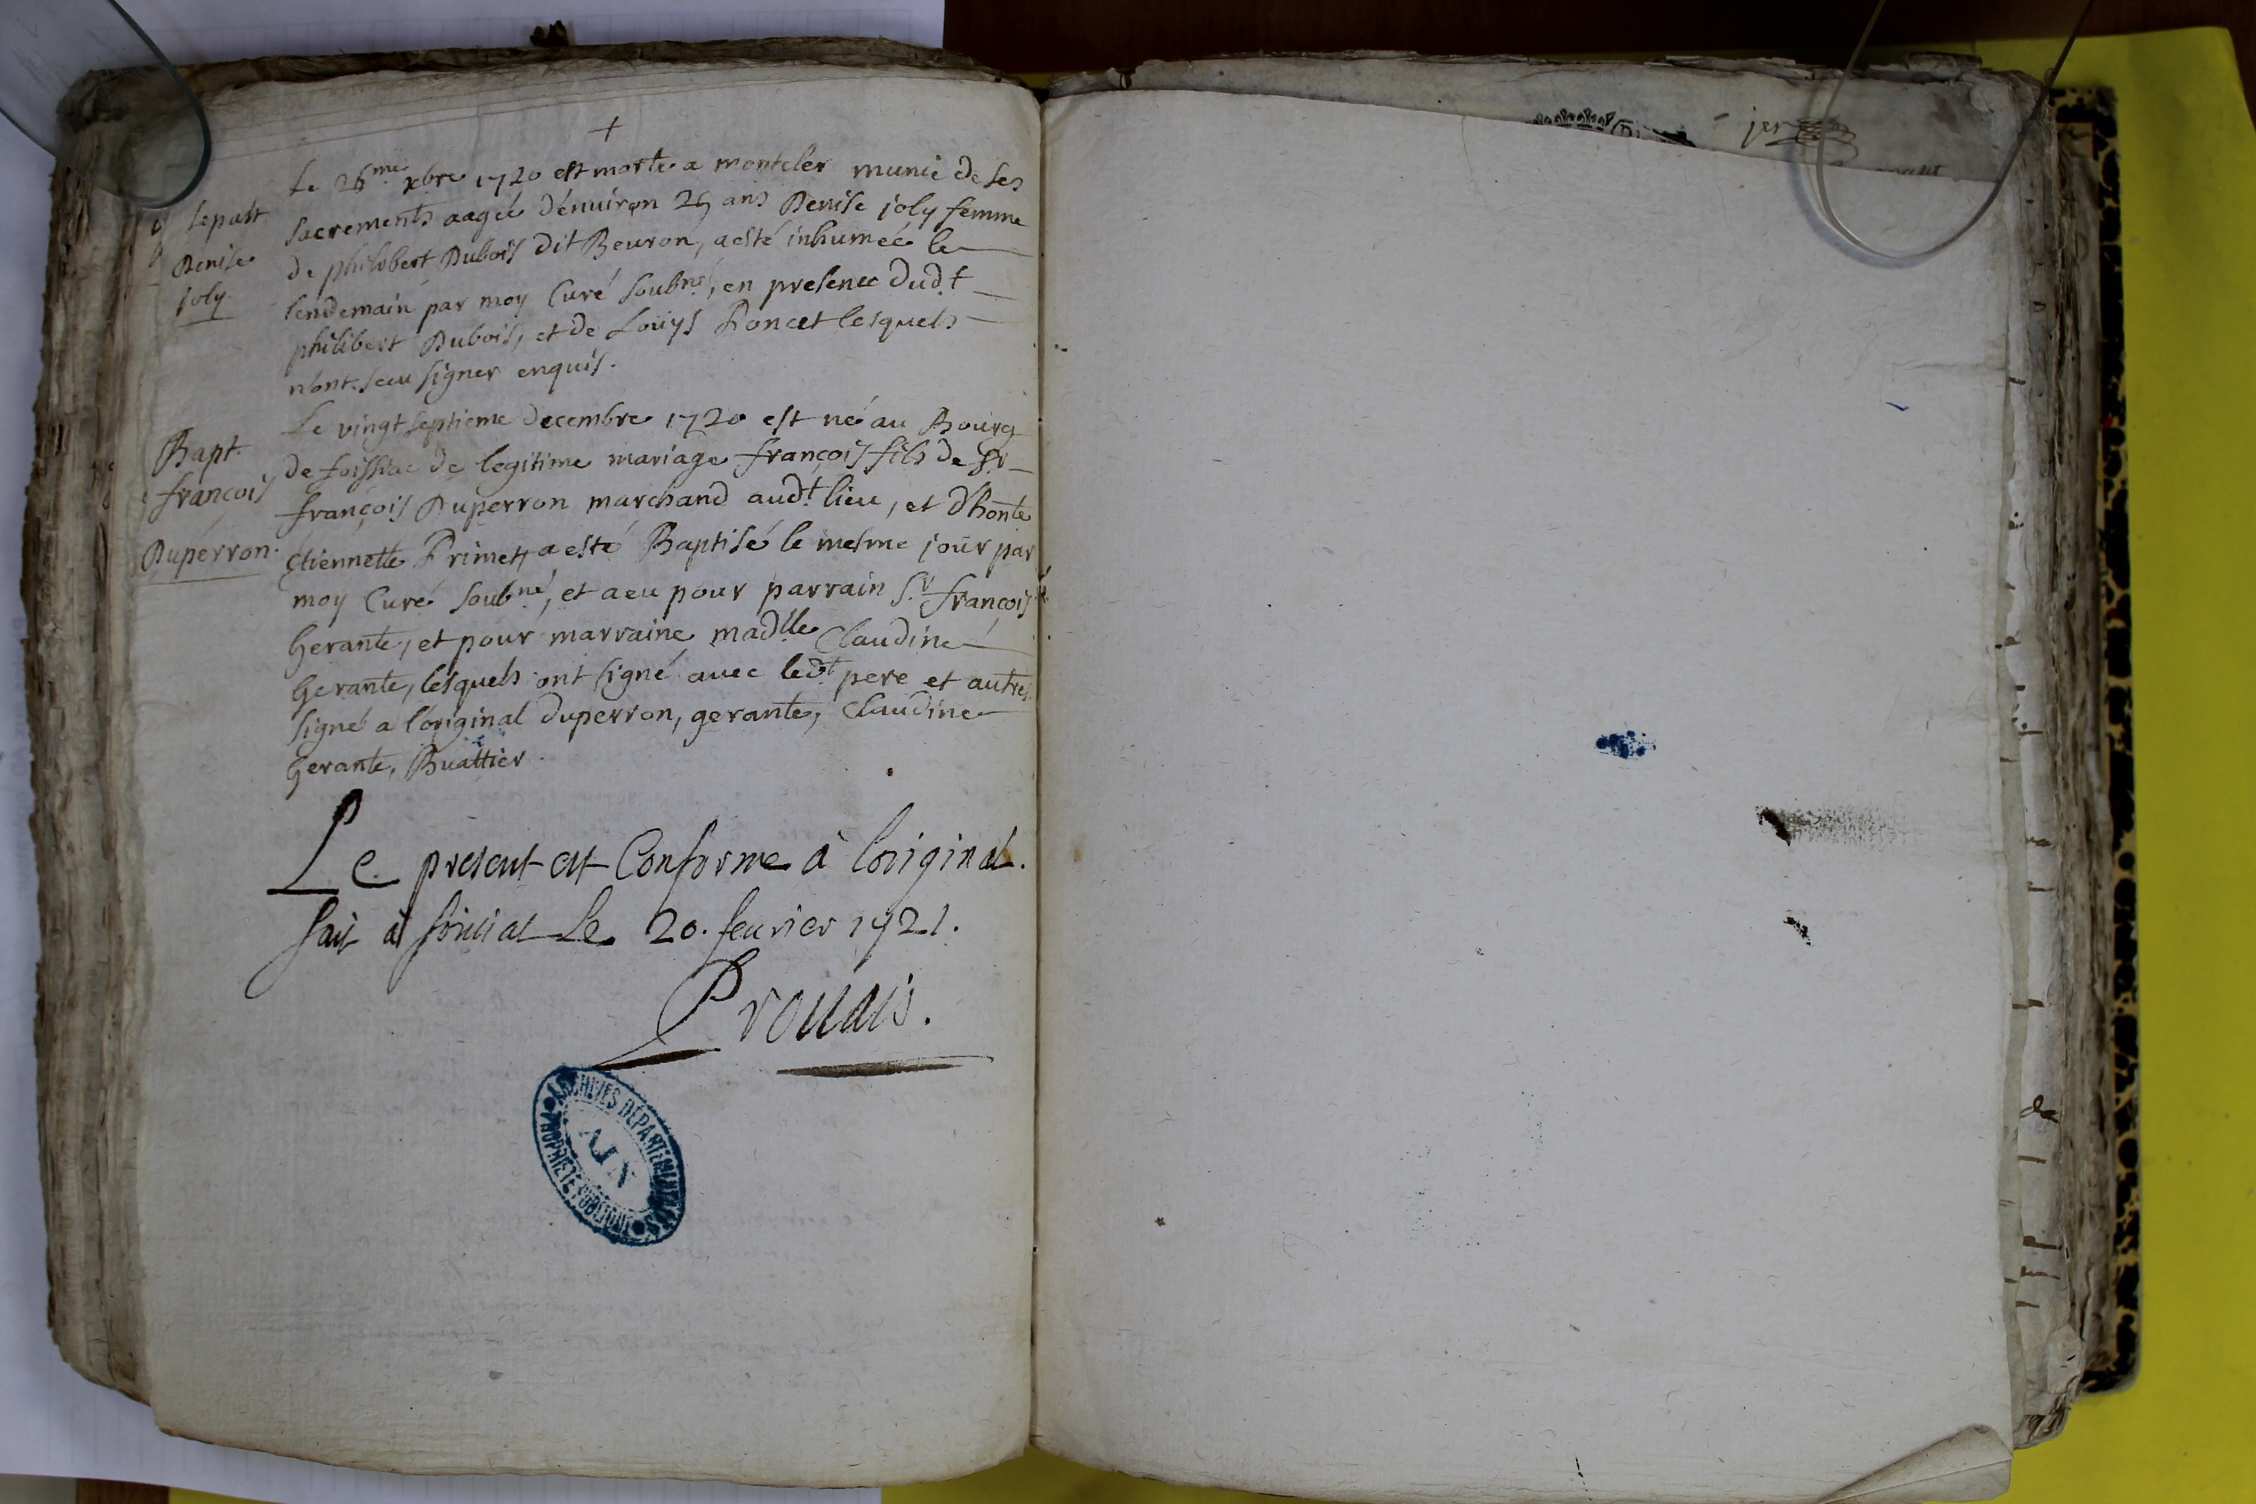 +
Le 26me xbre 1720 est morte a monteler munie de ses
sacrements aagée d'enuiron 25 ans Denise joly femme
de philibert Dubois dit Beuron, a esté inhumée le
lendemain par moy Curé soubné, en presence dud.t
philibert Dubois, et de Loüys Poncet lesquels
n'ont sceu signer enquis.
sepult
Denise
joly
Le vingt septieme decembre 1720 est né au Bourg
de foissiac de legitime mariage françois fils de Sr
françois Duperron marchand aud.t lieu, et d'honte
Etiennette Primet, a esté Baptisé le mesme jour par
moy Curé soubné, et a eu pour parrain S.r françois
Gerante, et pour marraine madlle Claudine
Gerante, lesquels ont signé auec led.t pere et autres
signé a l'original duperron, gerante, Claudine
Gerante, Buattier.
Bapt.
françois
Duperron.
Le present est Conforme à loriginal.
fait à foissiat Le 20. feurier 1721.
Prouais.
ARCHIVES DÉPARTEMENTALES
AIN
PROPRIÉTÉ PUBLIQUE
da